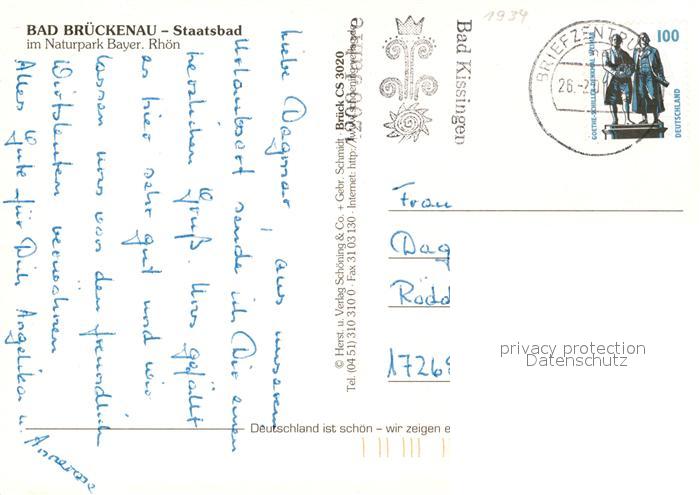 BAD BRÜCKENAU – Staatsbad
im Naturpark Bayer. Rhön
Liebe Dagmar, aus unserem
Urlaubsort sende ich Dir einen
herzlichen Gruß. Uns gefällt
es hier sehr gut und wir
lassen uns von den freundlichen
Wirtsleuten verwöhnen
Alles Gute für Dich Angelika u.
Annerose
© Herst. u. Verlag Schöning & Co. + Gebr. Schmidt · Brück CS 3020
Tel. (04 51) 310 310 0 · Fax 31 03 130 · Internet: http://
Bad Kissingen
1934
BRIEFZENTR
26.-
100
GOETHE-SCHILLER-DENKMAL WEIMAR
DEUTSCHLAND
Frau
Dag
Rödd
17268
privacy protection
Datenschutz
Deutschland ist schön – wir zeigen e